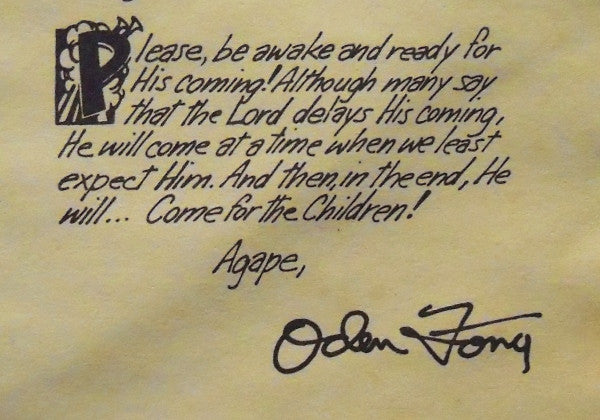 Please, be awake and ready for
His coming! Although many say
that the Lord delays His coming,
He will come at a time when we least
expect Him. And then, in the end, He
will... Come for the Children!
Agape,
Oden Fong